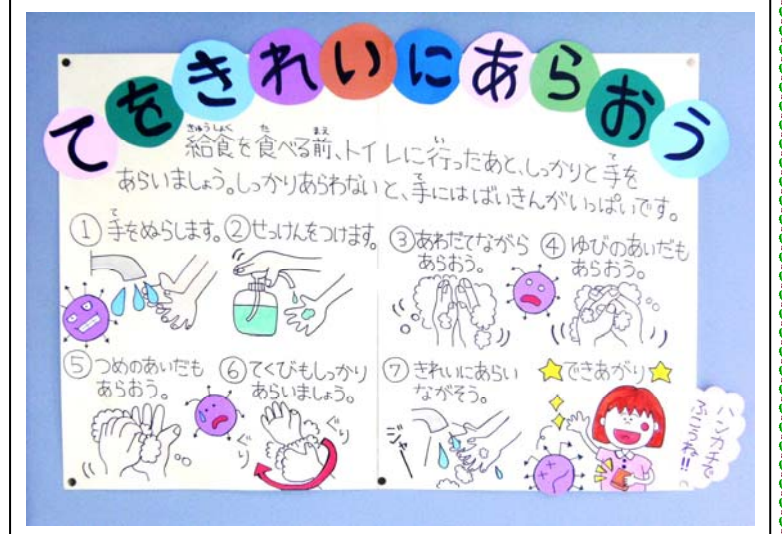 てをきれいにあらおう
給食を食べる前、トイレに行ったあと、しっかりと手を
きゅうしょく た まえ い て
あらいましょう。しっかりあらわないと、手にはばいきんがいっぱいです。
て
①手をぬらします。
て
②せっけんをつけます。
③あわだてながら
あらおう。
④ゆびのあいだも
あらおう。
⑤つめのあいだも
あらおう。
⑥てくびもしっかり
あらいましょう。
ぐり
ぐり
⑦きれいにあらい
ながそう。
ジャー
できあがり
ハンカチで
ふこうね!!